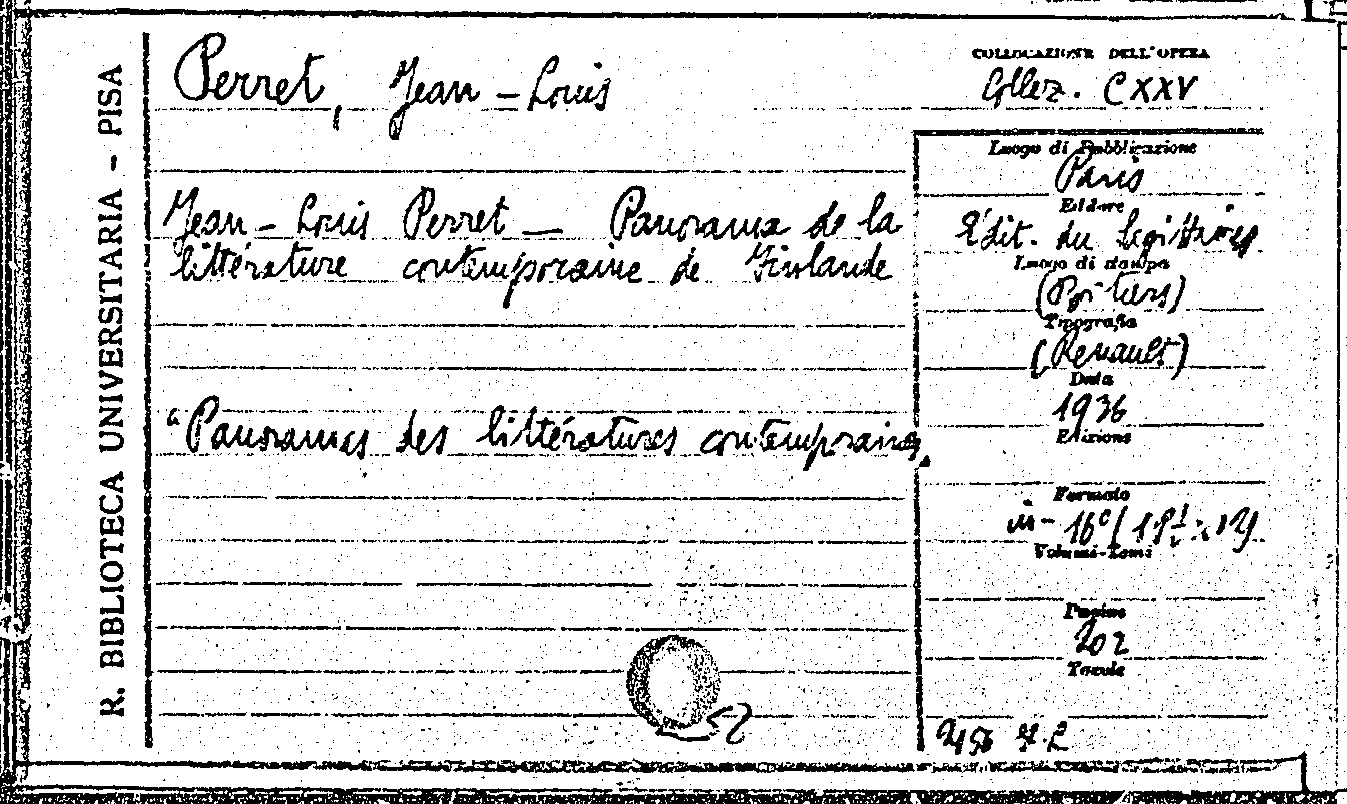 R. BIBLIOTECA UNIVERSITARIA - PISA
Perret, Jean-Louis
Jean-Louis Perret — Panorama de la
littérature contemporaine de Finlande
"Panoramas des littératures contemporaines"
COLLOCAZIONE DELL'OPERA
Collez. CXXV
Luogo di Pubblicazione
Paris
Editore
Édit. du Sagittaire
Luogo di stampa
(Poitiers)
Tipografia
(Renault)
Data
1936
Edizione
Formato
in-16°
Volumi-Tomi
Pagine
202
Tavole